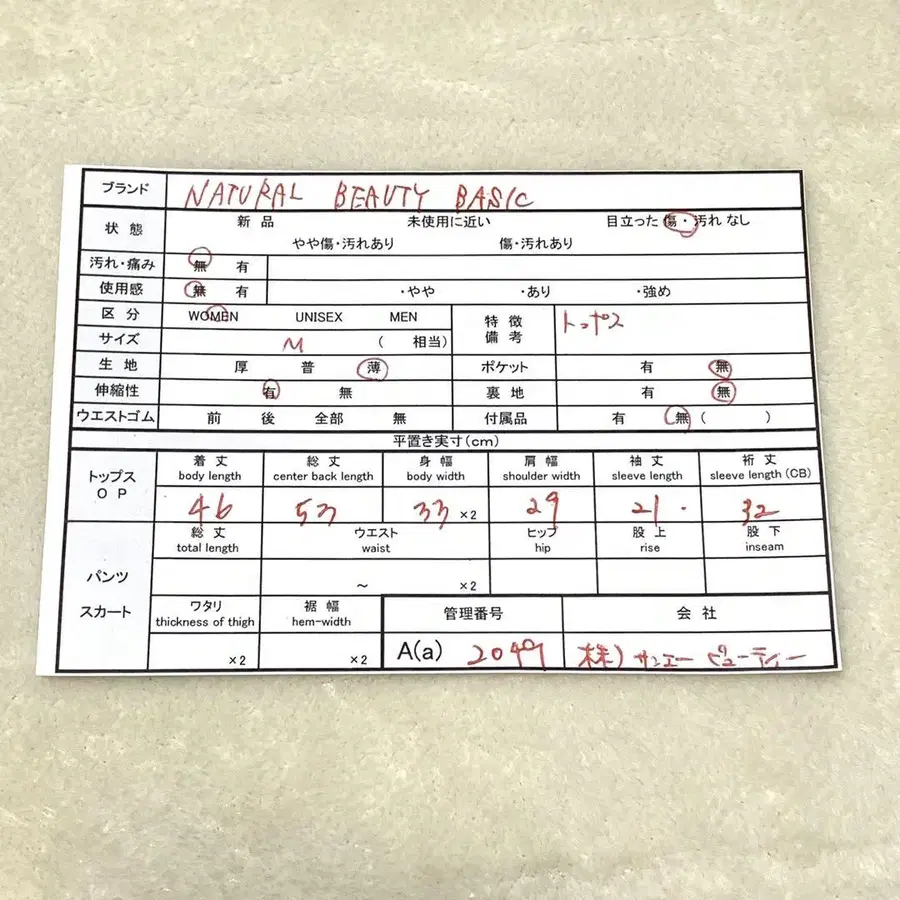 ブランド NATURAL BEAUTY BASIC
状態 新品 未使用に近い 目立った傷・汚れなし
やや傷・汚れあり 傷・汚れあり
汚れ・痛み 無 有
使用感 無 有 ・やや ・あり ・強め
区分 WOMEN UNISEX MEN 特徴 備考 トップス
サイズ M ( 相当)
生地 厚 普 薄 ポケット 有 無
伸縮性 有 無 裏地 有 無
ウエストゴム 前 後 全部 無 付属品 有 無 ( )
平置き実寸(cm)
トップス OP 着丈 総丈 身幅 肩幅 袖丈 裄丈
body length center back length body width shoulder width sleeve length sleeve length (CB)
46 53 33 ×2 29 21. 32
パンツ スカート 総丈 ウエスト ヒップ 股上 股下
total length waist hip rise inseam
～ ×2
ワタリ 裾幅 管理番号 会社
thickness of thigh hem-width
×2 ×2 A(a) 2049 株)サンエービューティー